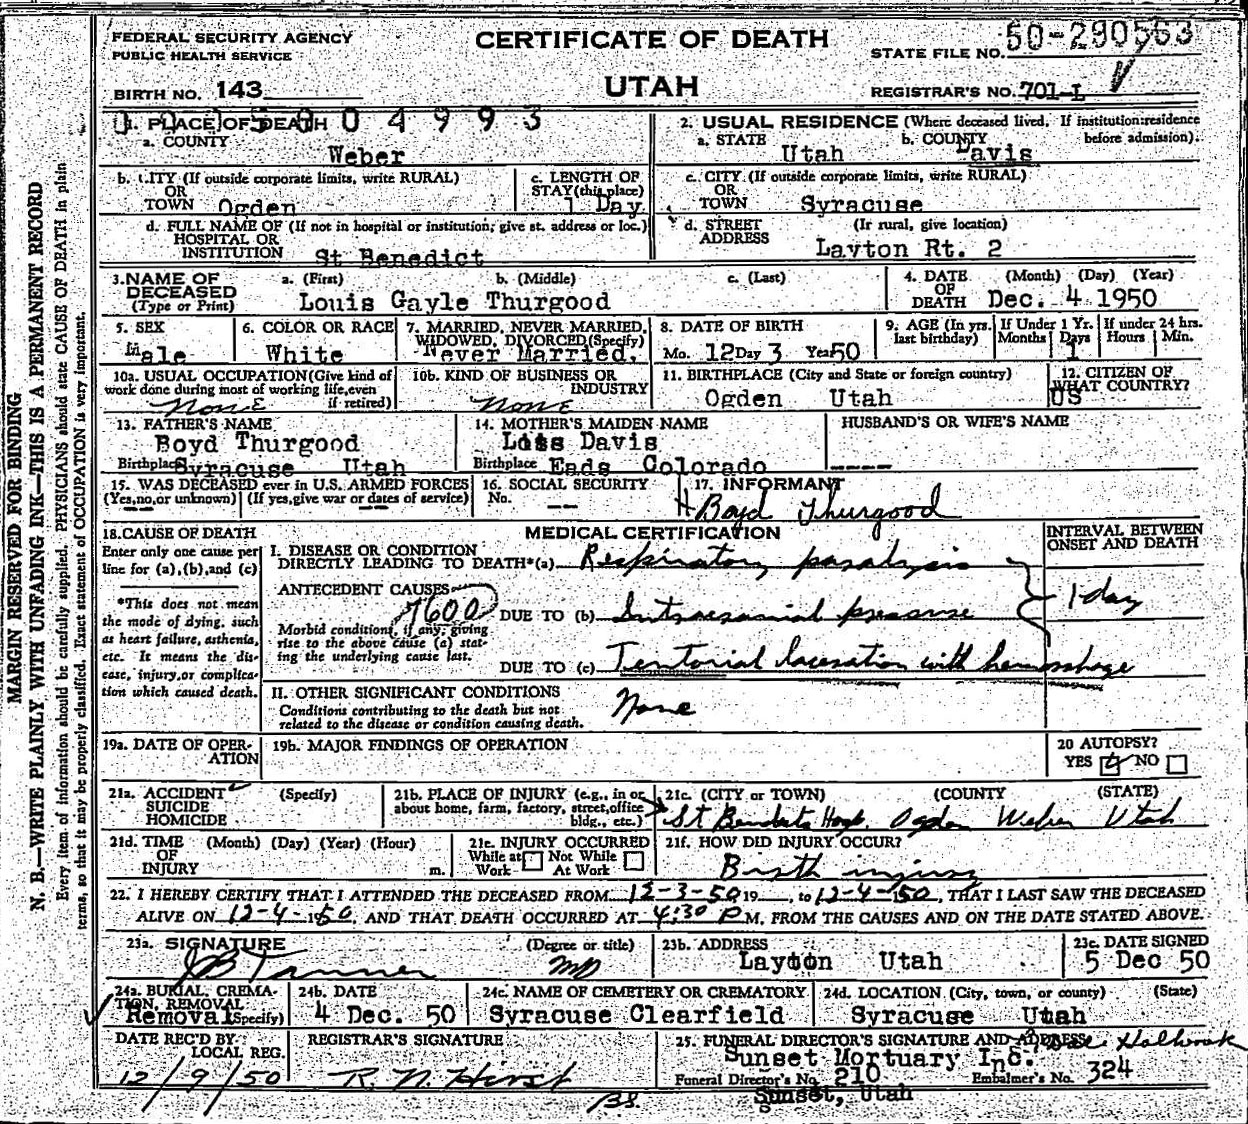 FEDERAL SECURITY AGENCY
PUBLIC HEALTH SERVICE
CERTIFICATE OF DEATH
STATE FILE NO. 50-290563
BIRTH NO. 143
UTAH
REGISTRAR'S NO. 701-L
04993
1. PLACE OF DEATH
a. COUNTY
Weber
2. USUAL RESIDENCE (Where deceased lived, If institution:residence before admission).
a. STATE b. COUNTY
Utah Davis
b. CITY (If outside corporate limits, write RURAL)
OR
TOWN Ogden
c. LENGTH OF
STAY (this place)
1 Day
c. CITY (If outside corporate limits, write RURAL)
OR
TOWN Syracuse
d. FULL NAME OF (If not in hospital or institution, give st. address or loc.)
HOSPITAL OR
INSTITUTION St Benedict
d. STREET (Ir rural, give location)
ADDRESS Layton Rt. 2
3. NAME OF
DECEASED
(Type or Print)
a. (First) b. (Middle) c. (Last)
Louis Gayle Thurgood
4. DATE (Month) (Day) (Year)
OF
DEATH Dec. 4 1950
5. SEX
Male
6. COLOR OR RACE
White
7. MARRIED, NEVER MARRIED,
WIDOWED, DIVORCED(Specify)
Never Married.
8. DATE OF BIRTH
Mo. 12 Day 3 Year 50
9. AGE (In yrs.
last birthday)
If Under 1 Yr.
Months Days
1
If under 24 hrs.
Hours Min.
10a. USUAL OCCUPATION(Give kind of
work done during most of working life,even
if retired)
NONE
10b. KIND OF BUSINESS OR
INDUSTRY
NONE
11. BIRTHPLACE (City and State or foreign country)
Ogden Utah
12. CITIZEN OF
WHAT COUNTRY?
US
13. FATHER'S NAME
Boyd Thurgood
Birthplace Syracuse Utah
14. MOTHER'S MAIDEN NAME
Lois Davis
Birthplace Eads Colorado
HUSBAND'S OR WIFE'S NAME
----
15. WAS DECEASED ever in U.S. ARMED FORCES
(Yes,no,or unknown) (If yes,give war or dates of service)
-- --
16. SOCIAL SECURITY
No. --
17. INFORMANT
H Boyd Thurgood
18. CAUSE OF DEATH
Enter only one cause per
line for (a),(b),and (c)
*This does not mean
the mode of dying, such
as heart failure, asthenia,
etc. It means the dis-
ease, injury,or complica-
tion which caused death.
MEDICAL CERTIFICATION
INTERVAL BETWEEN
ONSET AND DEATH
I. DISEASE OR CONDITION
DIRECTLY LEADING TO DEATH*(a) Respiratory paralysis
ANTECEDENT CAUSES
7600
DUE TO (b) Intracranial pressure
1 day
Morbid conditions, if any, giving
rise to the above cause (a) stat-
ing the underlying cause last.
DUE TO (c) Tentorial laceration with hemorrhage
II. OTHER SIGNIFICANT CONDITIONS
Conditions contributing to the death but not
related to the disease or condition causing death.
None
19a. DATE OF OPER-
ATION
19b. MAJOR FINDINGS OF OPERATION
20 AUTOPSY?
YES NO
21a. ACCIDENT (Specify)
SUICIDE
HOMICIDE
21b. PLACE OF INJURY (e.g., in or
about home, farm, factory, street,office
bldg., etc.)
21c. (CITY or TOWN) (COUNTY) (STATE)
St Benedicts Hosp. Ogden Weber Utah
21d. TIME (Month) (Day) (Year) (Hour)
OF
INJURY m.
21e. INJURY OCCURRED
While at Not While
Work At Work
21f. HOW DID INJURY OCCUR?
Birth injury
22. I HEREBY CERTIFY THAT I ATTENDED THE DECEASED FROM 12-3-50 19 , to 12-4-1950, THAT I LAST SAW THE DECEASED
ALIVE ON 12-4-1950, AND THAT DEATH OCCURRED AT 4:30 P M. FROM THE CAUSES AND ON THE DATE STATED ABOVE.
23a. SIGNATURE (Degree or title)
JB Tanner MD
23b. ADDRESS
Layton Utah
23c. DATE SIGNED
5 Dec 50
24a. BURIAL, CREMA-
TION, REMOVAL
Removal (Specify)
24b. DATE
4 Dec. 50
24c. NAME OF CEMETERY OR CREMATORY
Syracuse Clearfield
24d. LOCATION (City, town, or county) (State)
Syracuse Utah
DATE REC'D BY
LOCAL REG.
12/9/50
REGISTRAR'S SIGNATURE
R. N. Hirst
BS.
25. FUNERAL DIRECTOR'S SIGNATURE AND ADDRESS
Holbrook
Sunset Mortuary Inc.
Funeral Director's No. 210 Embalmer's No. 324
Sunset, Utah
MARGIN RESERVED FOR BINDING
N. B.—WRITE PLAINLY WITH UNFADING INK—THIS IS A PERMANENT RECORD
Every item of information should be carefully supplied. PHYSICIANS should state CAUSE OF DEATH in plain
terms, so that it may be properly classified. Exact statement of OCCUPATION is very important.